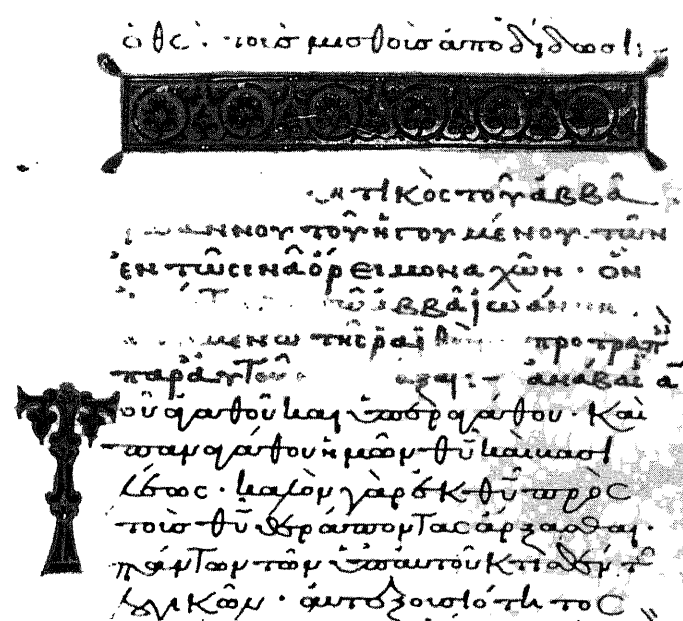 ὁ θς. τοῖσ μισθοῖσ ἀποδίδωσι:
τικὸς τοῦ ἀββᾶ
ἰωάννου τοῦ ἡγουμένου τῶν
ἐν τῶ σινᾶ ὄρει μοναχῶν· ὃν
τῶ ἀββᾶ ἰωάννη
μένω τῆς ραϊθοῦ προτραπ
παρ' αὐτοῦ ἀνάβασ α
Τοῦ ἀγαθοῦ καὶ ὑπεραγάθου· καὶ
παναγάθου ἡμῶν θῦ καὶ βασι
λέως· καλὸν γὰρ ἐκ θῦ πρὸς
τοὺσ θῦ θεράποντας ἄρξασθαι·
πάντων τῶν ὑπ' αὐτοῦ κτισθέντ
λογικῶν· αὐτεξουσιότητι τὸ